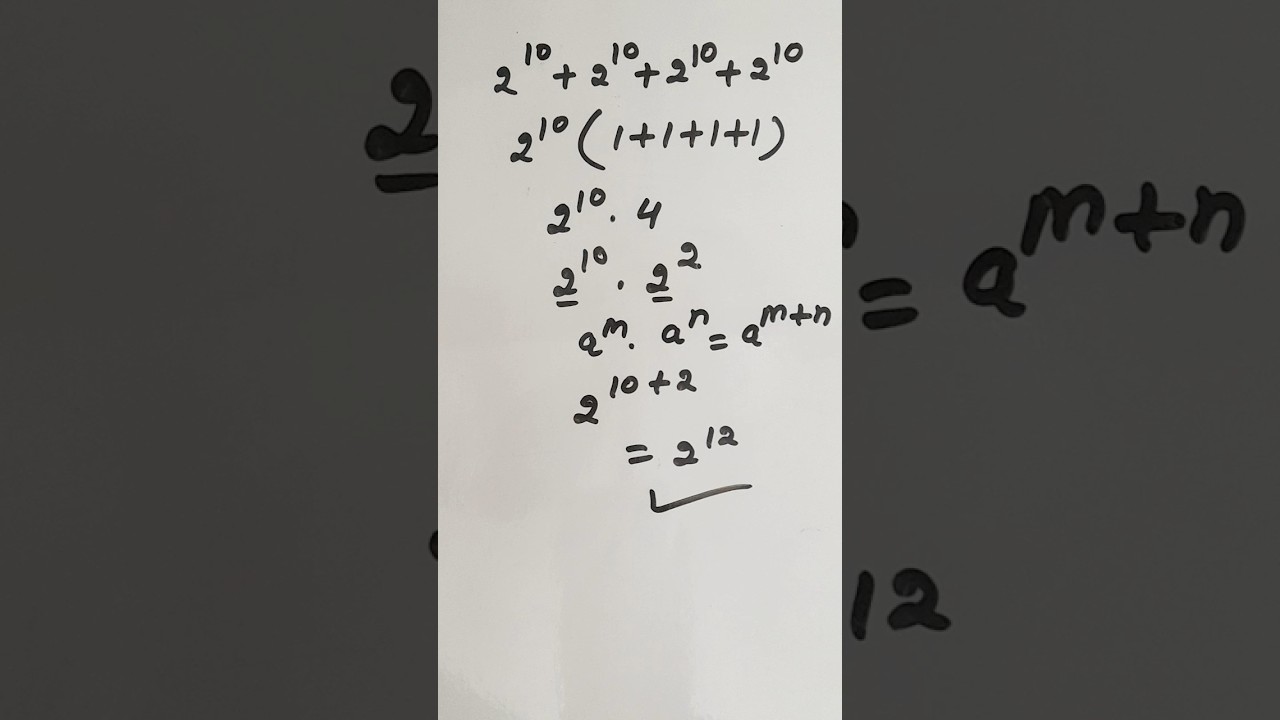 2^10 + 2^10 + 2^10 + 2^10
2^10 (1+1+1+1)
2^10 . 4
2^10 . 2^2
a^m . a^n = a^m+n
2^10+2
= 2^12
2
= a^m+n
12